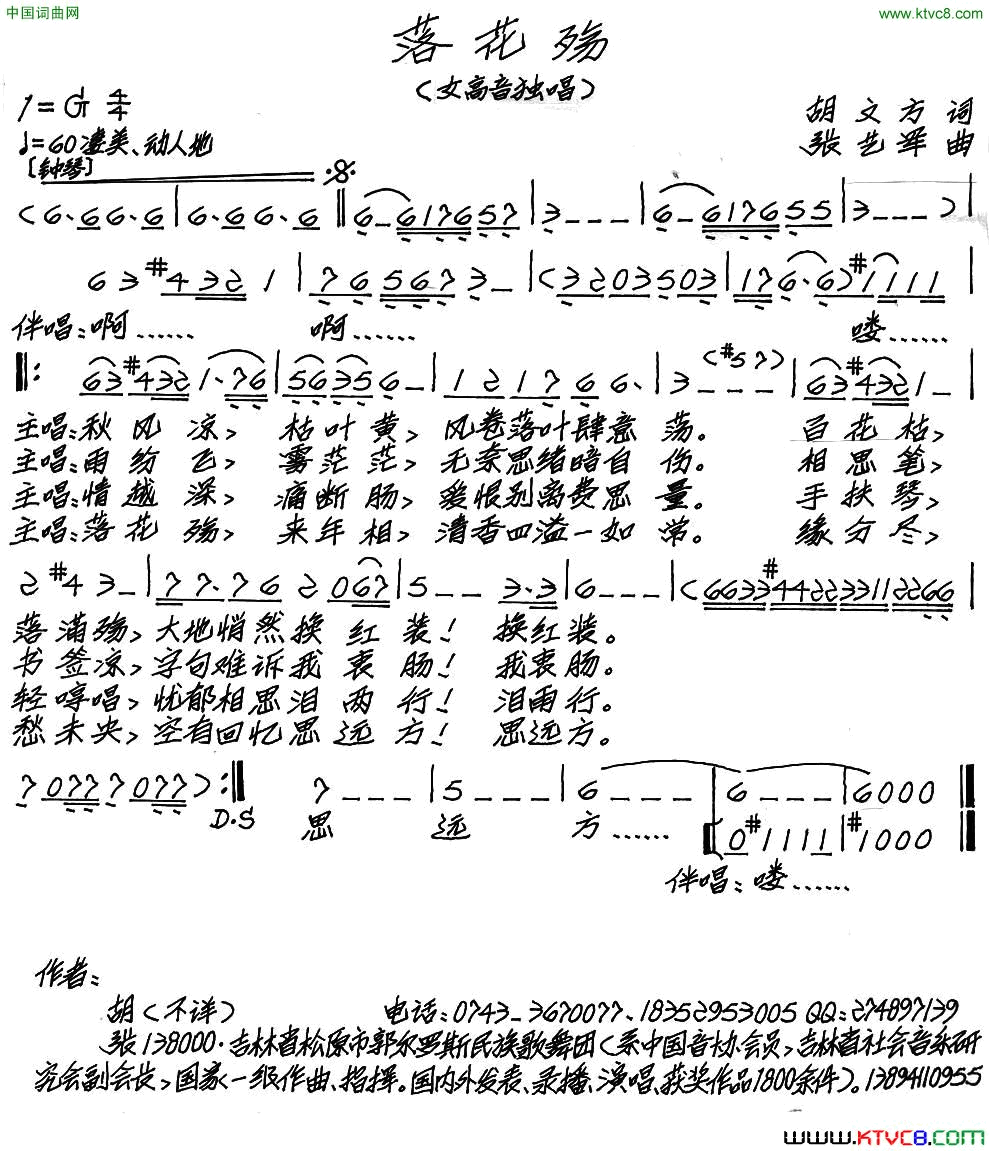 中国词曲网
www.ktvc8.com
落花殇
(女高音独唱)
1=G 4/4
胡文方 词
♩=60 凄美、动人地
张艺军 曲
[钟琴]
(6·66·6|6·66·6‖6_617657|3---|6_617655|3---)|
63#4321|765673-|(3203503|176·6)#1111|
伴唱:啊…… 啊…… 喽……
‖:63#4321·76|56356-|121766·|3---(#57)|63#4321-|
主唱:秋风凉, 枯叶黄, 风卷落叶肆意荡。 百花枯,
主唱:雨纷飞, 雾茫茫, 无奈思绪暗自伤。 相思笔,
主唱:情越深, 痛断肠, 爱恨别离费思量。 手扶琴,
主唱:落花殇, 来年相, 清香四溢一如常。 缘分尽,
2#43-|77·762067|5--3·3|6---|(6633#442233112266|
落满殇, 大地悄然换红装! 换红装。
书签凉, 字句难诉我衷肠! 我衷肠。
轻哼唱, 忧郁相思泪两行! 泪雨行。
愁未央, 空有回忆思远方! 思远方。
7077 7077):‖ 7---|5---|6---|6---|6000‖
D.S 思 远 方……
0#1111|#1000
伴唱:喽……
作者:
胡(不详) 电话:0743-3670077、18352953005 QQ:274897139
张138000·吉林省松原市郭尔罗斯民族歌舞团(系中国音协会员,吉林省社会音乐研
究会副会长,国家一级作曲、指挥。国内外发表、录播、演唱、获奖作品1800余件)。13894110955
www.KTVC8.com